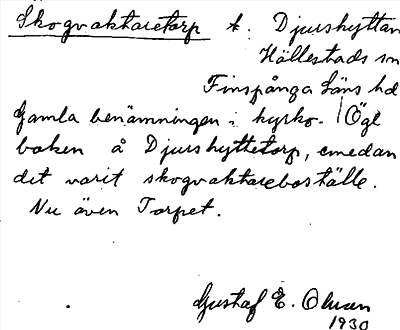 Skogvaktaretorp t. Djurshyttan
Hällestads sn
Finspånga Läns hd
Gamla benämningen i kyrko- Ögl
boken å Djurshyttetorp, emedan
det varit skogvaktareboställe.
Nu även Torpet.
Gustaf E. Olson
1930